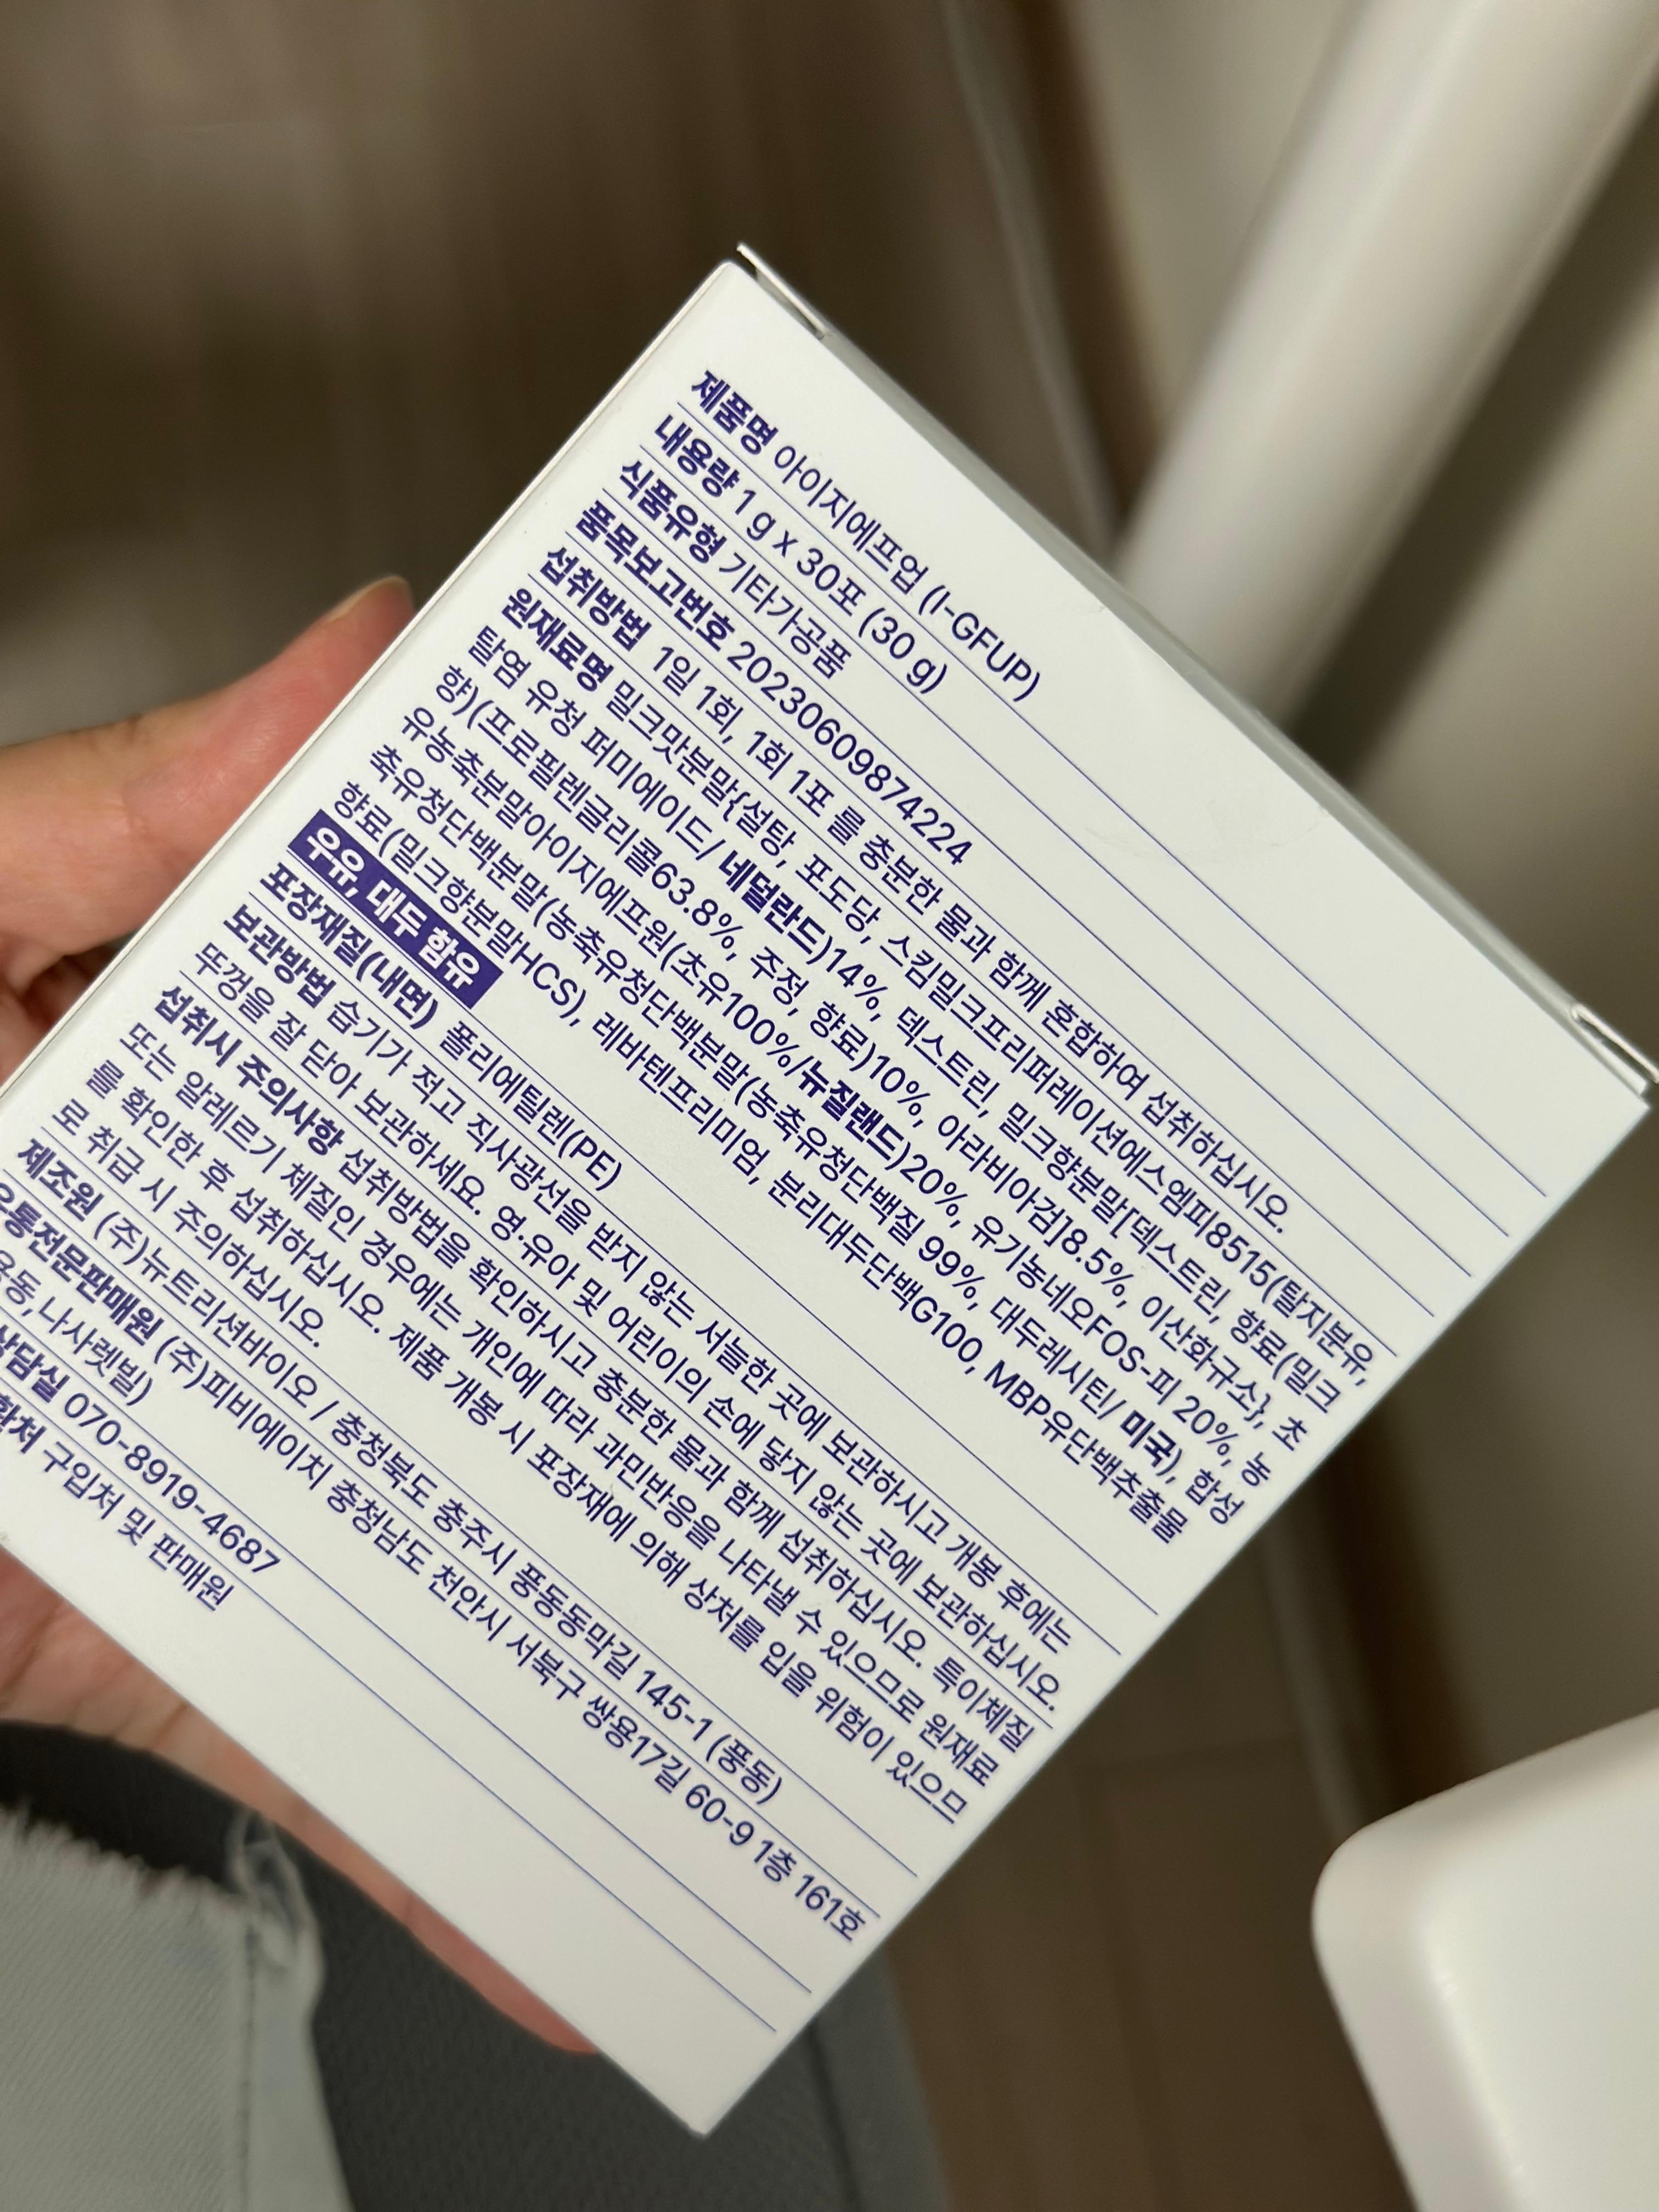 제품명 아이지에프업 (I-GFUP)
내용량 1 g x 30포 (30 g)
식품유형 기타가공품
품목보고번호 20230609874224
섭취방법 1일 1회, 1회 1포 를 충분한 물과 함께 혼합하여 섭취하십시오.
원재료명 밀크맛분말{설탕, 포도당, 스킴밀크프리퍼레이션에스엠피8515(탈지분유,
탈염 유청 퍼미에이드/ 네덜란드)14%, 덱스트린, 밀크향분말[덱스트린, 향료(밀크
향)(프로필렌글리콜63.8%, 주정, 향료)10%, 아라비아검]8.5%, 이산화규소}, 초
유농축분말아이지에프원(초유100%/뉴질랜드)20%, 유기농네오FOS-피 20%, 농
축유청단백분말(농축유청단백분말(농축유청단백질 99%, 대두레시틴/ 미국), 합성
향료(밀크향분말HCS), 레바텐프리미엄, 분리대두단백G100, MBP유단백추출물
우유, 대두 함유
포장재질(내면) 폴리에틸렌(PE)
보관방법 습기가 적고 직사광선을 받지 않는 서늘한 곳에 보관하시고 개봉 후에는
뚜껑을 잘 닫아 보관하세요. 영·유아 및 어린이의 손에 닿지 않는 곳에 보관하십시오.
섭취시 주의사항 섭취방법을 확인하시고 충분한 물과 함께 섭취하십시오. 특이체질
또는 알레르기 체질인 경우에는 개인에 따라 과민반응을 나타낼 수 있으므로 원재료
를 확인한 후 섭취하십시오. 제품 개봉 시 포장재에 의해 상처를 입을 위험이 있으므
로 취급 시 주의하십시오.
제조원 (주)뉴트리션바이오 / 충청북도 충주시 풍동동막길 145-1 (풍동)
유통전문판매원 (주)피비에이치 충청남도 천안시 서북구 쌍용17길 60-9 1층 161호
용동, 나사렛빌)
상담실 070-8919-4687
환처 구입처 및 판매원